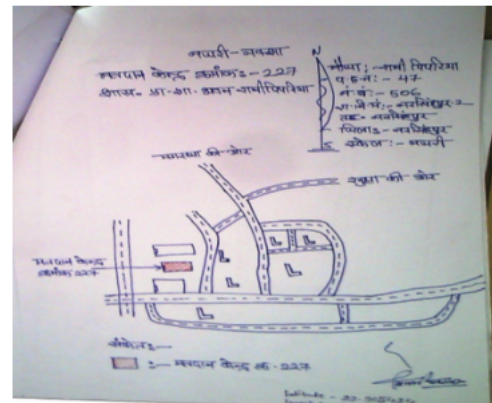 नजरी-नक्शा
मतदान केन्द्र क्रमांक :- 227
शास. प्रा. शा. भवन रानीपिपरिया
N
मौजा :- रानी पिपरिया
प. ह. नं. :- 47
नं. बं. :- 506
रा. नि. मं. :- नरसिंहपुर-2
तह. नरसिंहपुर
जिला :- नरसिंहपुर
स्केल :- नजरी
S
की ओर
की ओर
मतदान केन्द्र
क्रमांक 227
संकेत :-
:- मतदान केन्द्र क्र. 227
Latitude -